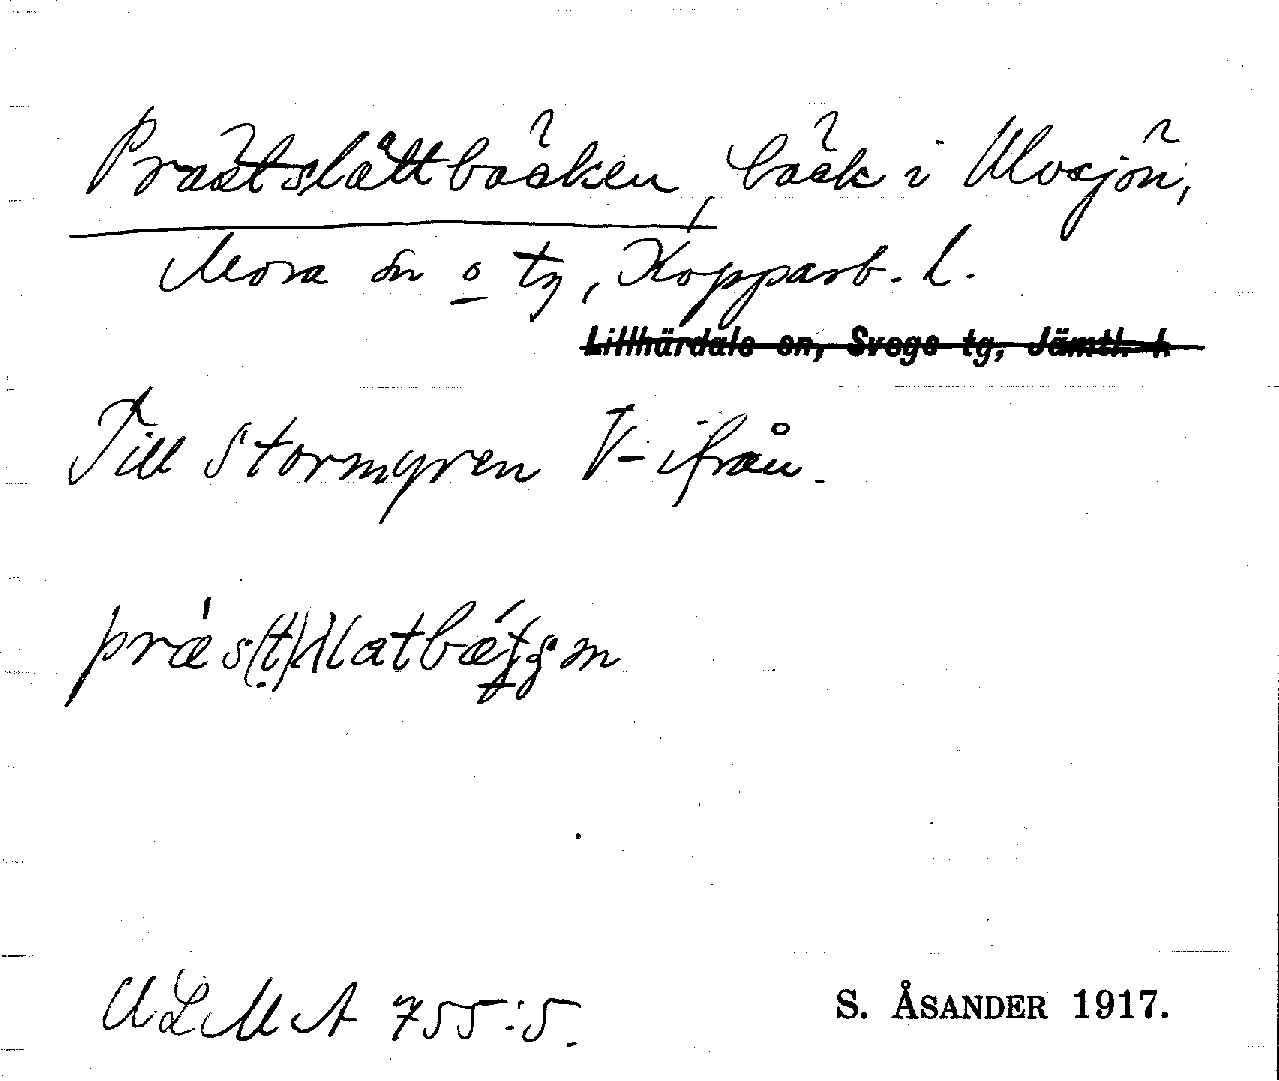 Prästslåttbäcken, bäck i Ulvsjön,
Mora sn o tg, Kopparb. l.
Lillhärdals sn, Svegs tg, Jämtl. l.
Till Stormyren V-ifrån.
ULMA 755:5.
S. ÅSANDER 1917.